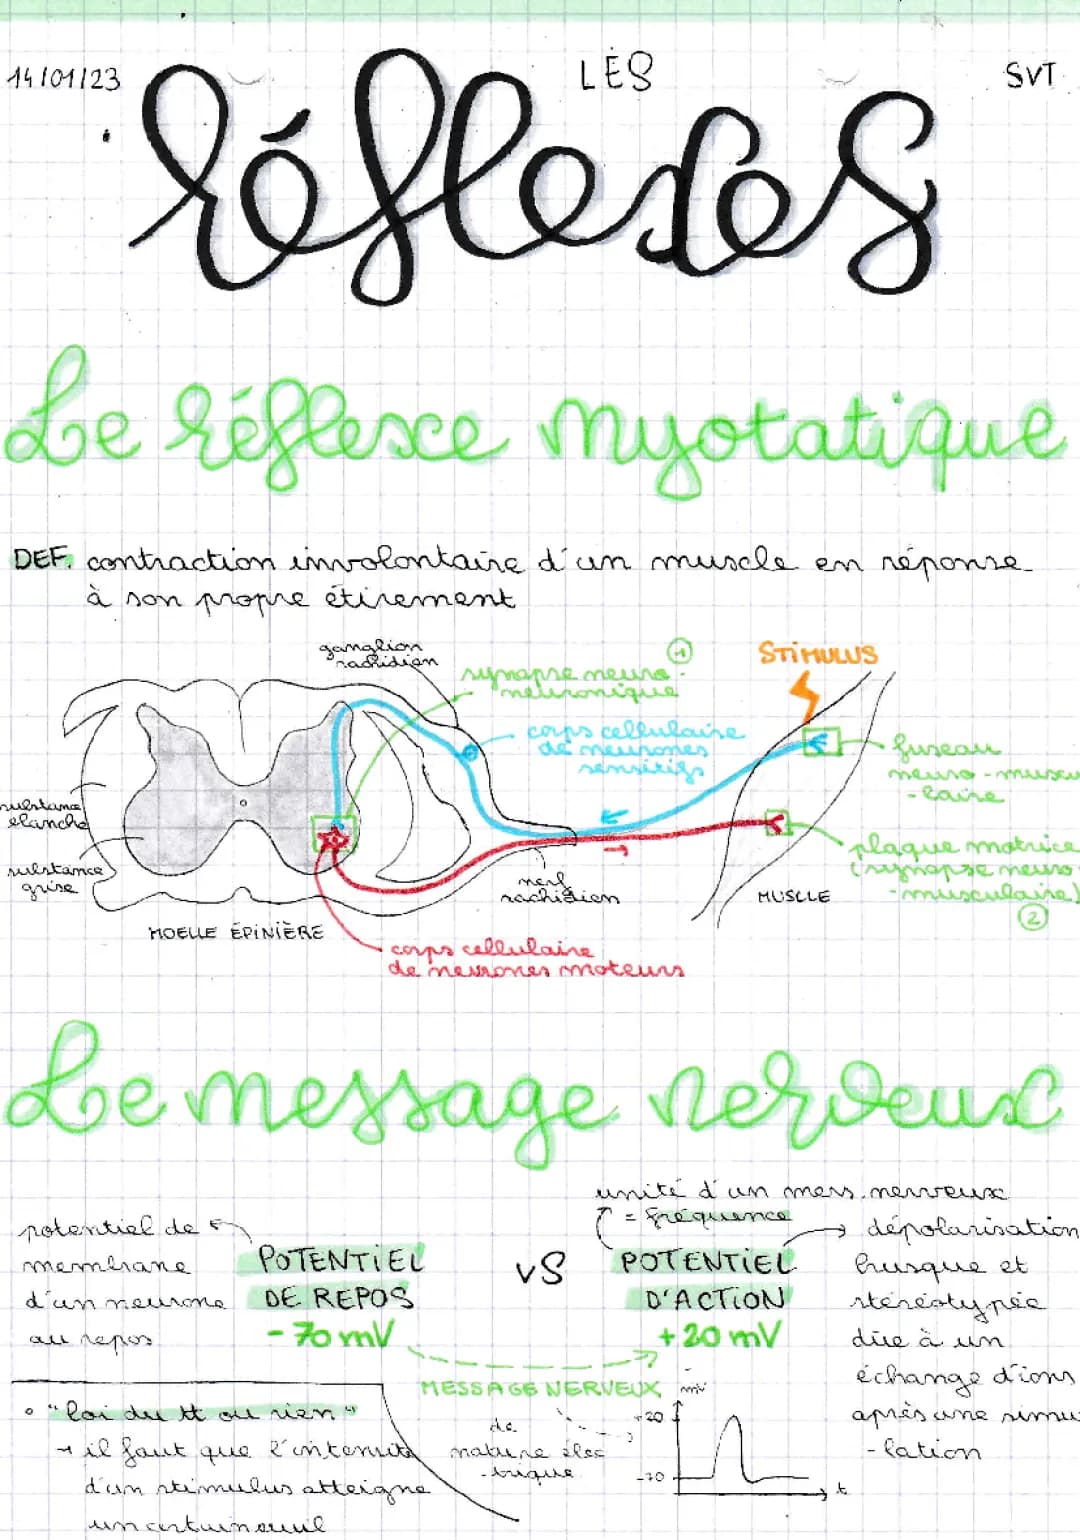 14/01/23
LES
SVT
réflexes
Le réflexe myotatique
DEF. contraction involontaire d'un muscle en réponse
à son propre étirement
ganglion
rachidien
synapse neuro-
neuronique
1
STIMULUS
corps cellulaire
de neurones
sensitifs
fuseau
neuro-muscu
-laire
substance
blanche
substance
grise
plaque motrice
(synapse neuro-
-musculaire)
2
nerf
rachidien
MUSCLE
MOELLE ÉPINIÈRE
corps cellulaire
de neurones moteurs
Le message nerveux
unité d'un mess. nerveux
= fréquence
potentiel de
membrane
d'un neurone
au repos
POTENTIEL
DE REPOS
-70 mV
VS
POTENTIEL
D'ACTION
+20 mV
dépolarisation
brusque et
stéréotypée
due à un
échange d'ions
après une simu
-lation
MESSAGE NERVEUX
de
nature élec
-trique
mV
+20
-70
t
"loi du tt ou rien"
→ il faut que l'intensité
d'un stimulus atteigne
un certain seuil